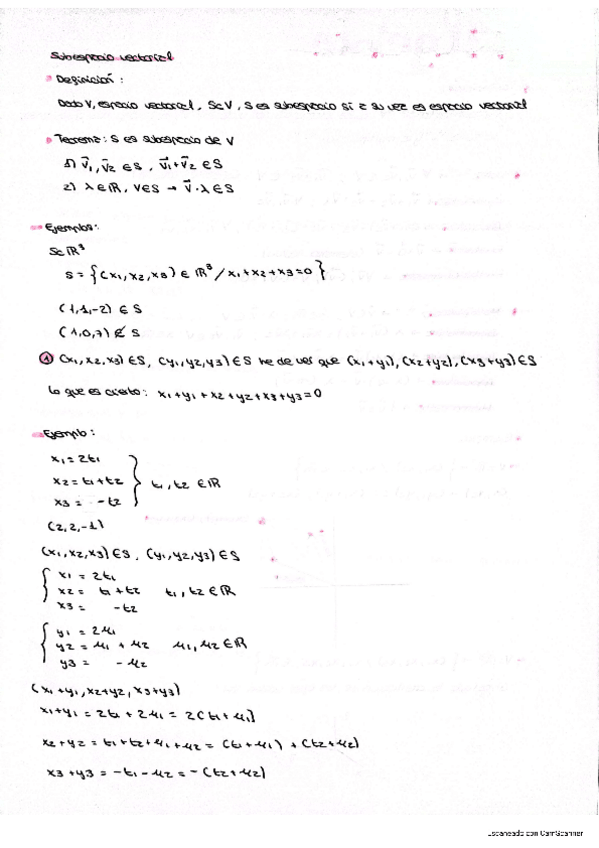 Subespacio vectorial
Definición:
Dado V, espacio vectorial, S⊂V, S es subespacio si a su vez es espacio vectorial
Teorema: S es subespacio de V
1) v⃗1, v⃗2 ∈ S, v⃗1+v⃗2 ∈ S
2) λ ∈ ℝ, v∈S → v⃗·λ ∈ S
Ejemplos:
S⊂ℝ³
S = {(x1, x2, x3) ∈ ℝ³ / x1+x2+x3=0}
(1,1,-2) ∈ S
(1,0,7) ∉ S
① (x1, x2, x3) ∈ S, (y1, y2, y3) ∈ S he de ver que (x1+y1), (x2+y2), (x3+y3) ∈ S
Lo que es cierto: x1+y1+x2+y2+x3+y3=0
Ejemplo:
x1 = 2t1
x2 = t1+t2 } t1, t2 ∈ ℝ
x3 = -t2
(2,2,-1)
(x1, x2, x3) ∈ S, (y1, y2, y3) ∈ S
{ x1 = 2t1
x2 = t1+t2 t1, t2 ∈ ℝ
x3 = -t2
{ y1 = 2μ1
y2 = μ1 + μ2 μ1, μ2 ∈ ℝ
y3 = -μ2
(x1+y1, x2+y2, x3+y3)
x1+y1 = 2t1 + 2μ1 = 2(t1+μ1)
x2+y2 = t1+t2+μ1+μ2 = (t1+μ1) + (t2+μ2)
x3+y3 = -t1-μ2 = -(t2+μ2)
Escaneado con CamScanner